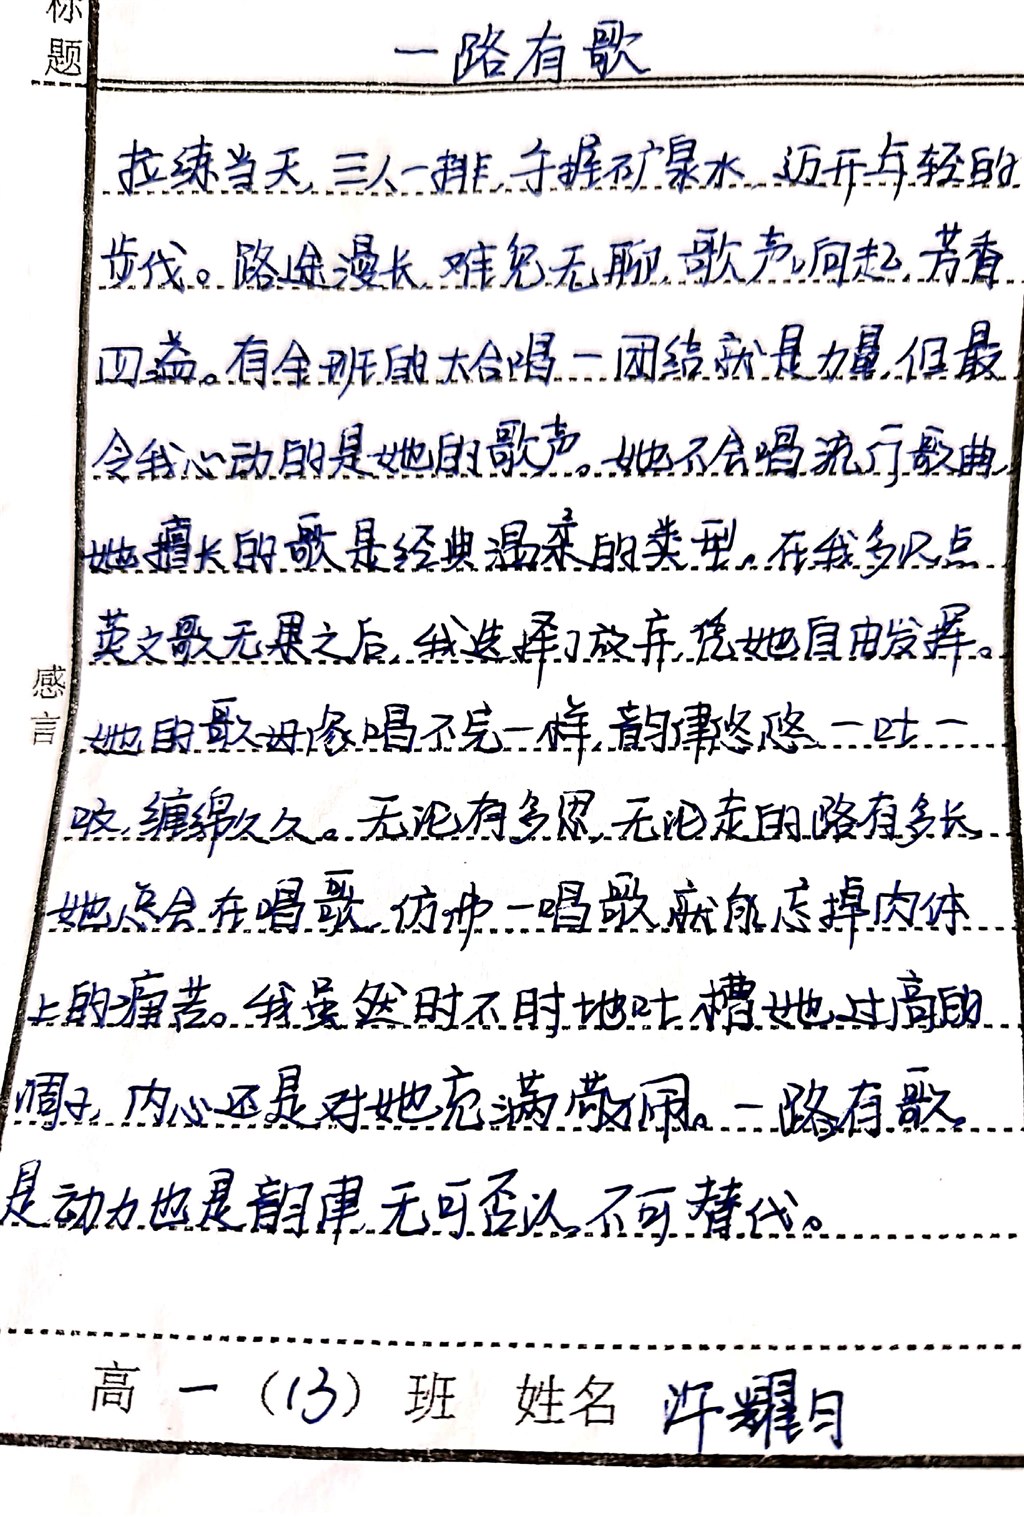 标题
一路有歌
拉练当天,三人一排,手握矿泉水,迈开年轻的
步伐。路途漫长,难免无聊,歌声响起,芳香
四益。有全班的大合唱一团结就是力量,但最
令我心动的是她的歌声。她不会唱流行歌曲,
她擅长的歌是经典温柔的类型。在我多次点
英文歌无果之后,我选择了放弃,凭她自由发挥。
她的歌毋像唱不完一样,韵律悠悠,一吐一
吸,缠绵久久。无论有多累,无论走的路有多长,
她总会在唱歌,仿佛一唱歌就能忘掉肉体
上的痛苦。我虽然时不时地吐槽她过高的
调子,内心还是对她充满敬佩。一路有歌,
是动力也是韵律,无可否认,不可替代。
感言
高一(13)班 姓名 许耀月